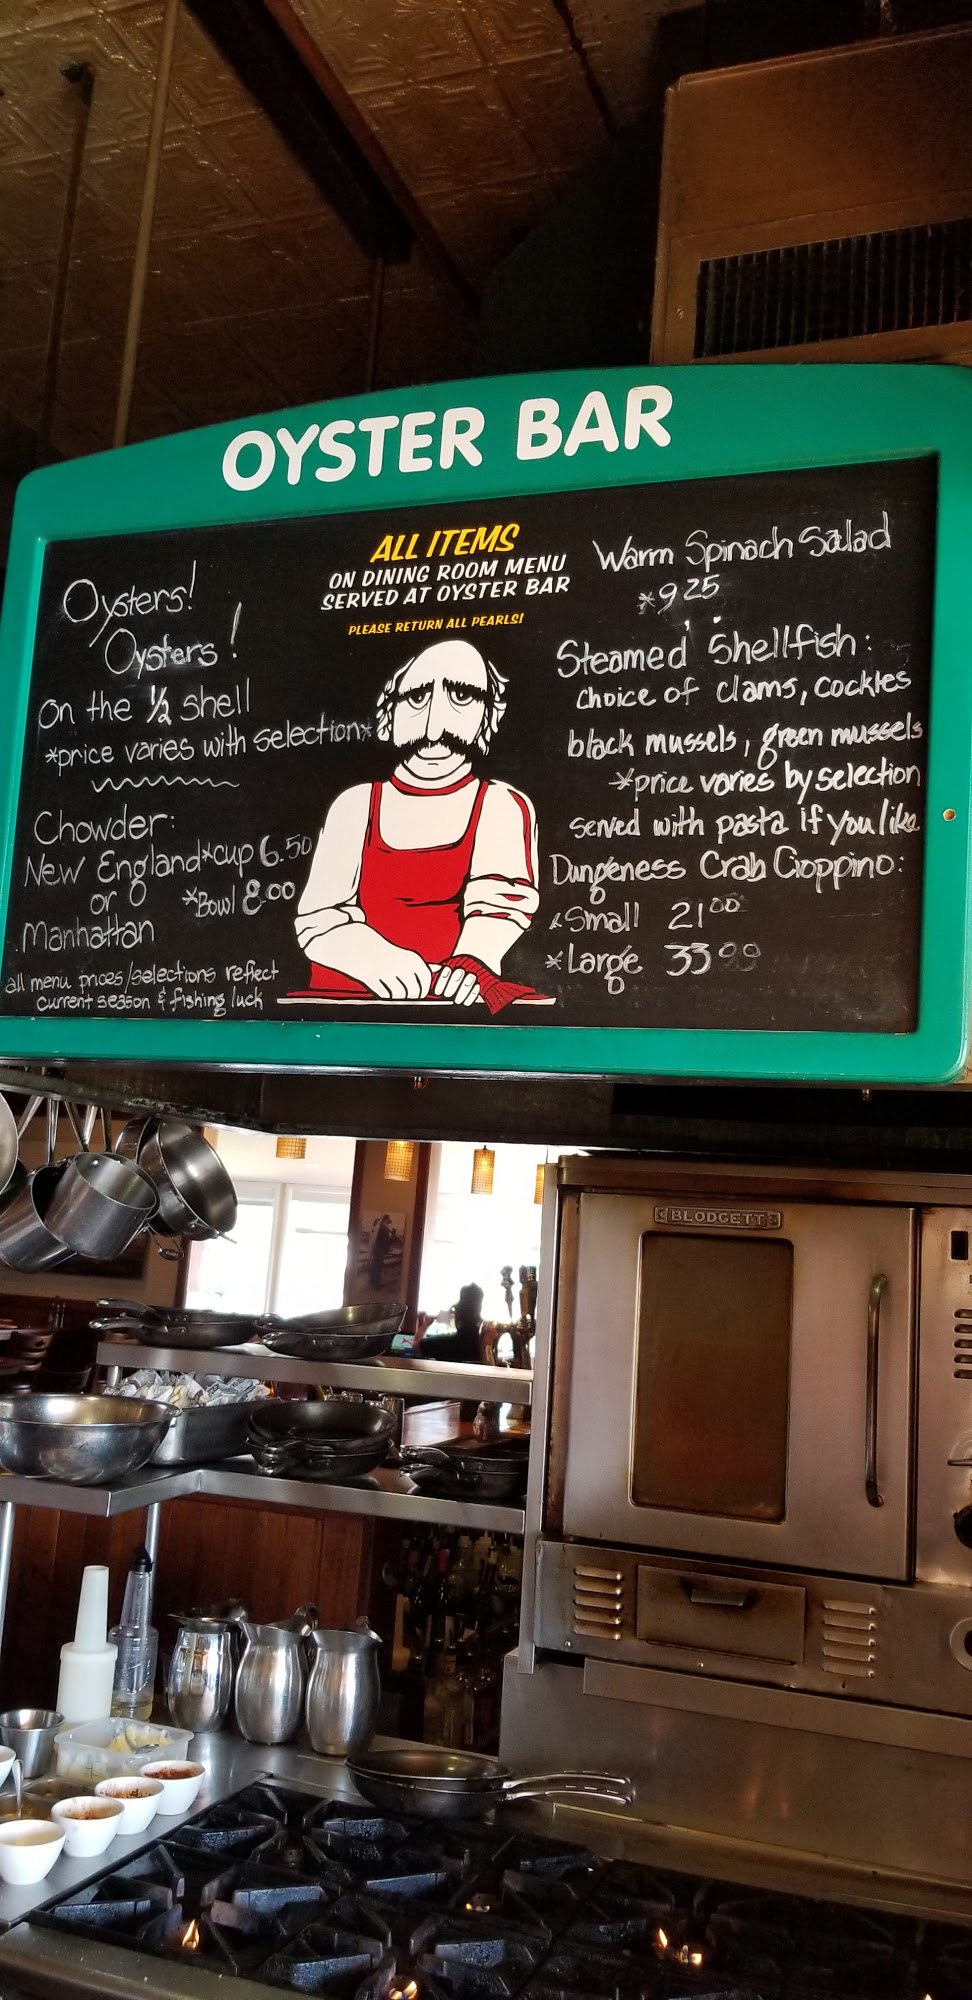 OYSTER BAR
ALL ITEMS
ON DINING ROOM MENU
SERVED AT OYSTER BAR
PLEASE RETURN ALL PEARLS!
Oysters!
Oysters!
on the 1/2 shell
*price varies with selection*
Chowder:
New England *cup 6.50
or *Bowl 8.00
Manhattan
all menu prices/selections reflect
current season & fishing luck
Warm Spinach Salad
*9.25
Steamed Shellfish:
choice of clams, cockles
black mussels, green mussels
*price varies by selection
served with pasta if you like
Dungeness Crab Cioppino:
*Small 21.00
*Large 33.00
BLODGETT